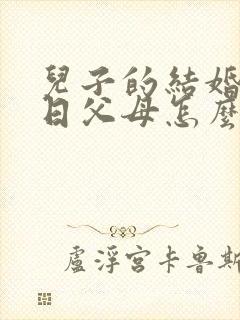 兒子的結婚
日父母怎麼
盧浮宮卡魯斯